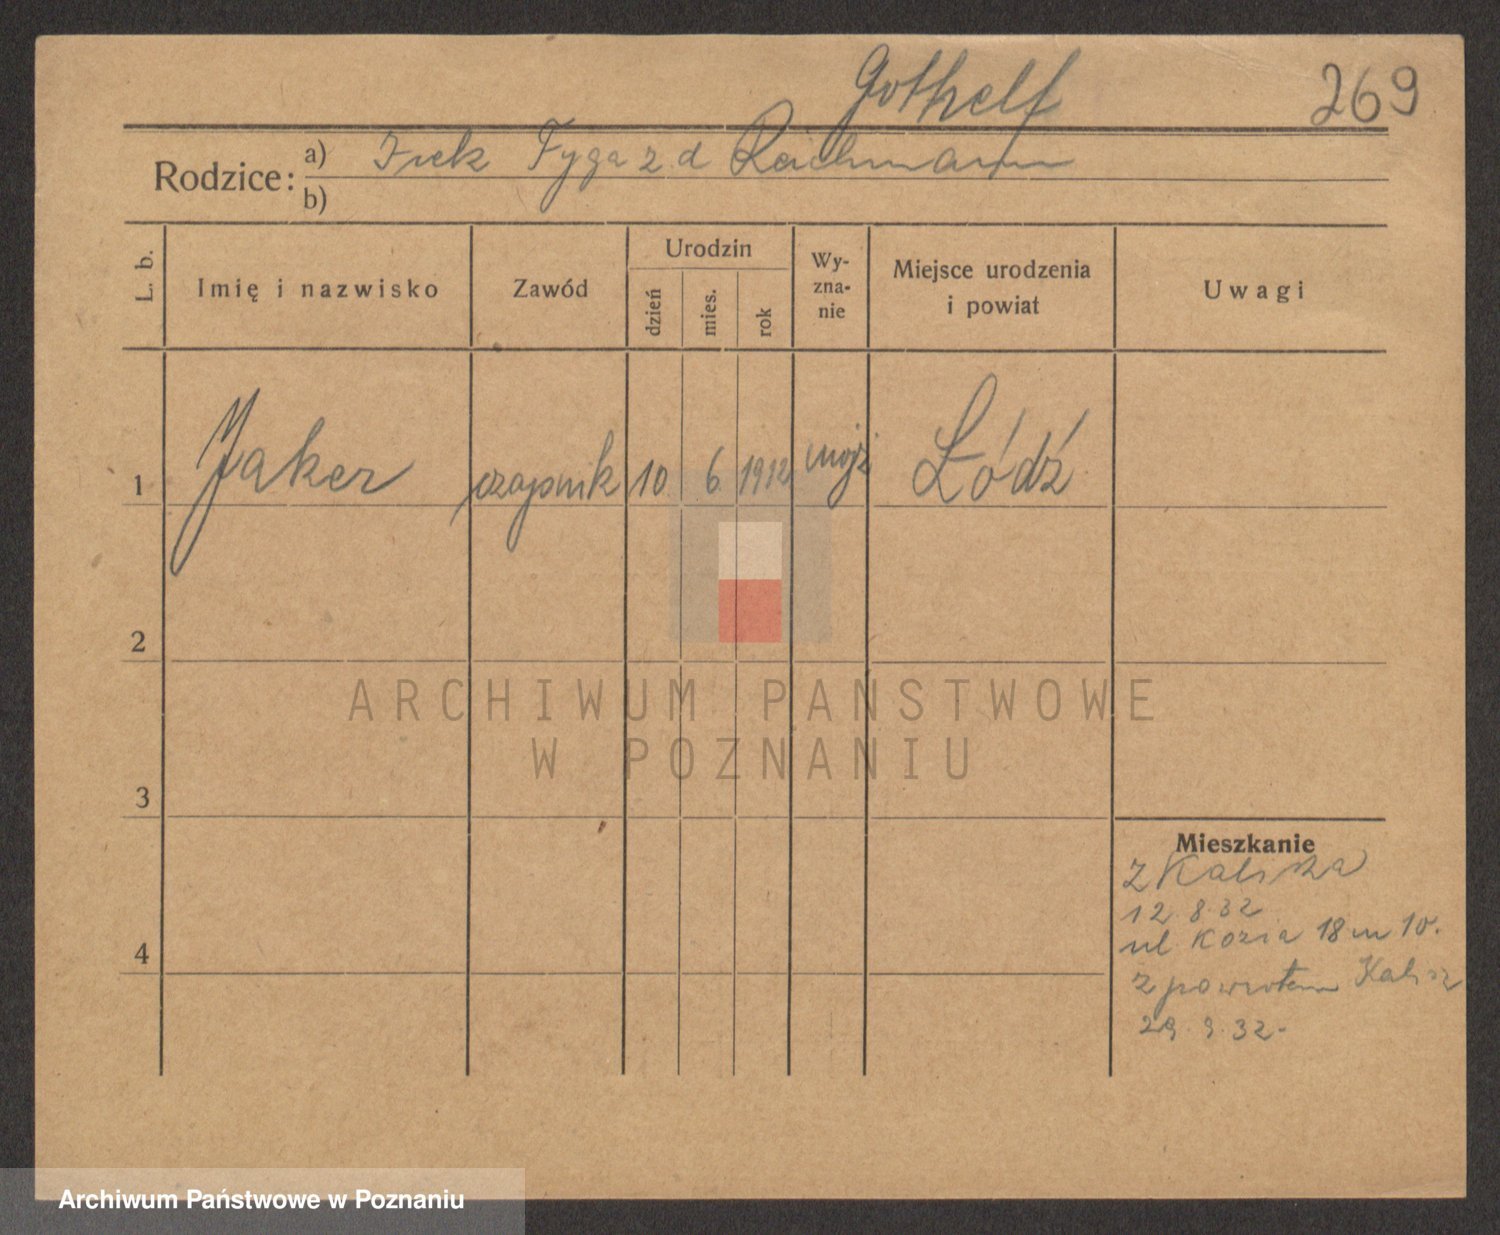 Gothelf
269
Rodzice:
a) Icek Fyga z d Reichmann
b)
L. b.
Imię i nazwisko
Zawód
Urodzin
dzień
mies.
rok
Wy-
zna-
nie
Miejsce urodzenia
i powiat
Uwagi
1 Jaker czapnik 10 6 1912 mojż Łódź
2
3
4
Mieszkanie
z Kalisza
12 8 32
ul Kozia 18 m 10.
z powrotem Kalisz
29. 9. 32.-
ARCHIWUM PAŃSTWOWE
W POZNANIU
Archiwum Państwowe w Poznaniu